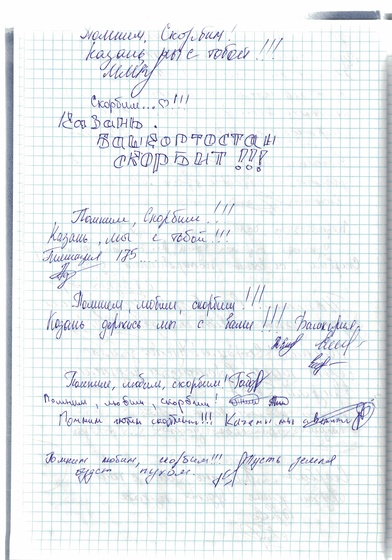 Помним, Скорбим!
Казань, мы с тобой!!!
Скорбим...♡!!!
Казань.
БАШКОРТОСТАН
СКОРБИТ!!!
Помним, Скорбим!!!
Казань, мы с тобой!!!
Гимназия 175....
Помним, любим, скорбим!!!
Казань держись мы с вами!!!
Помним, любим, скорбим!
Помним, любим, скорбим!
Помним любим скорбим!!! мы
Помним любим, скорбим!!! Пусть земля
будет пухом.